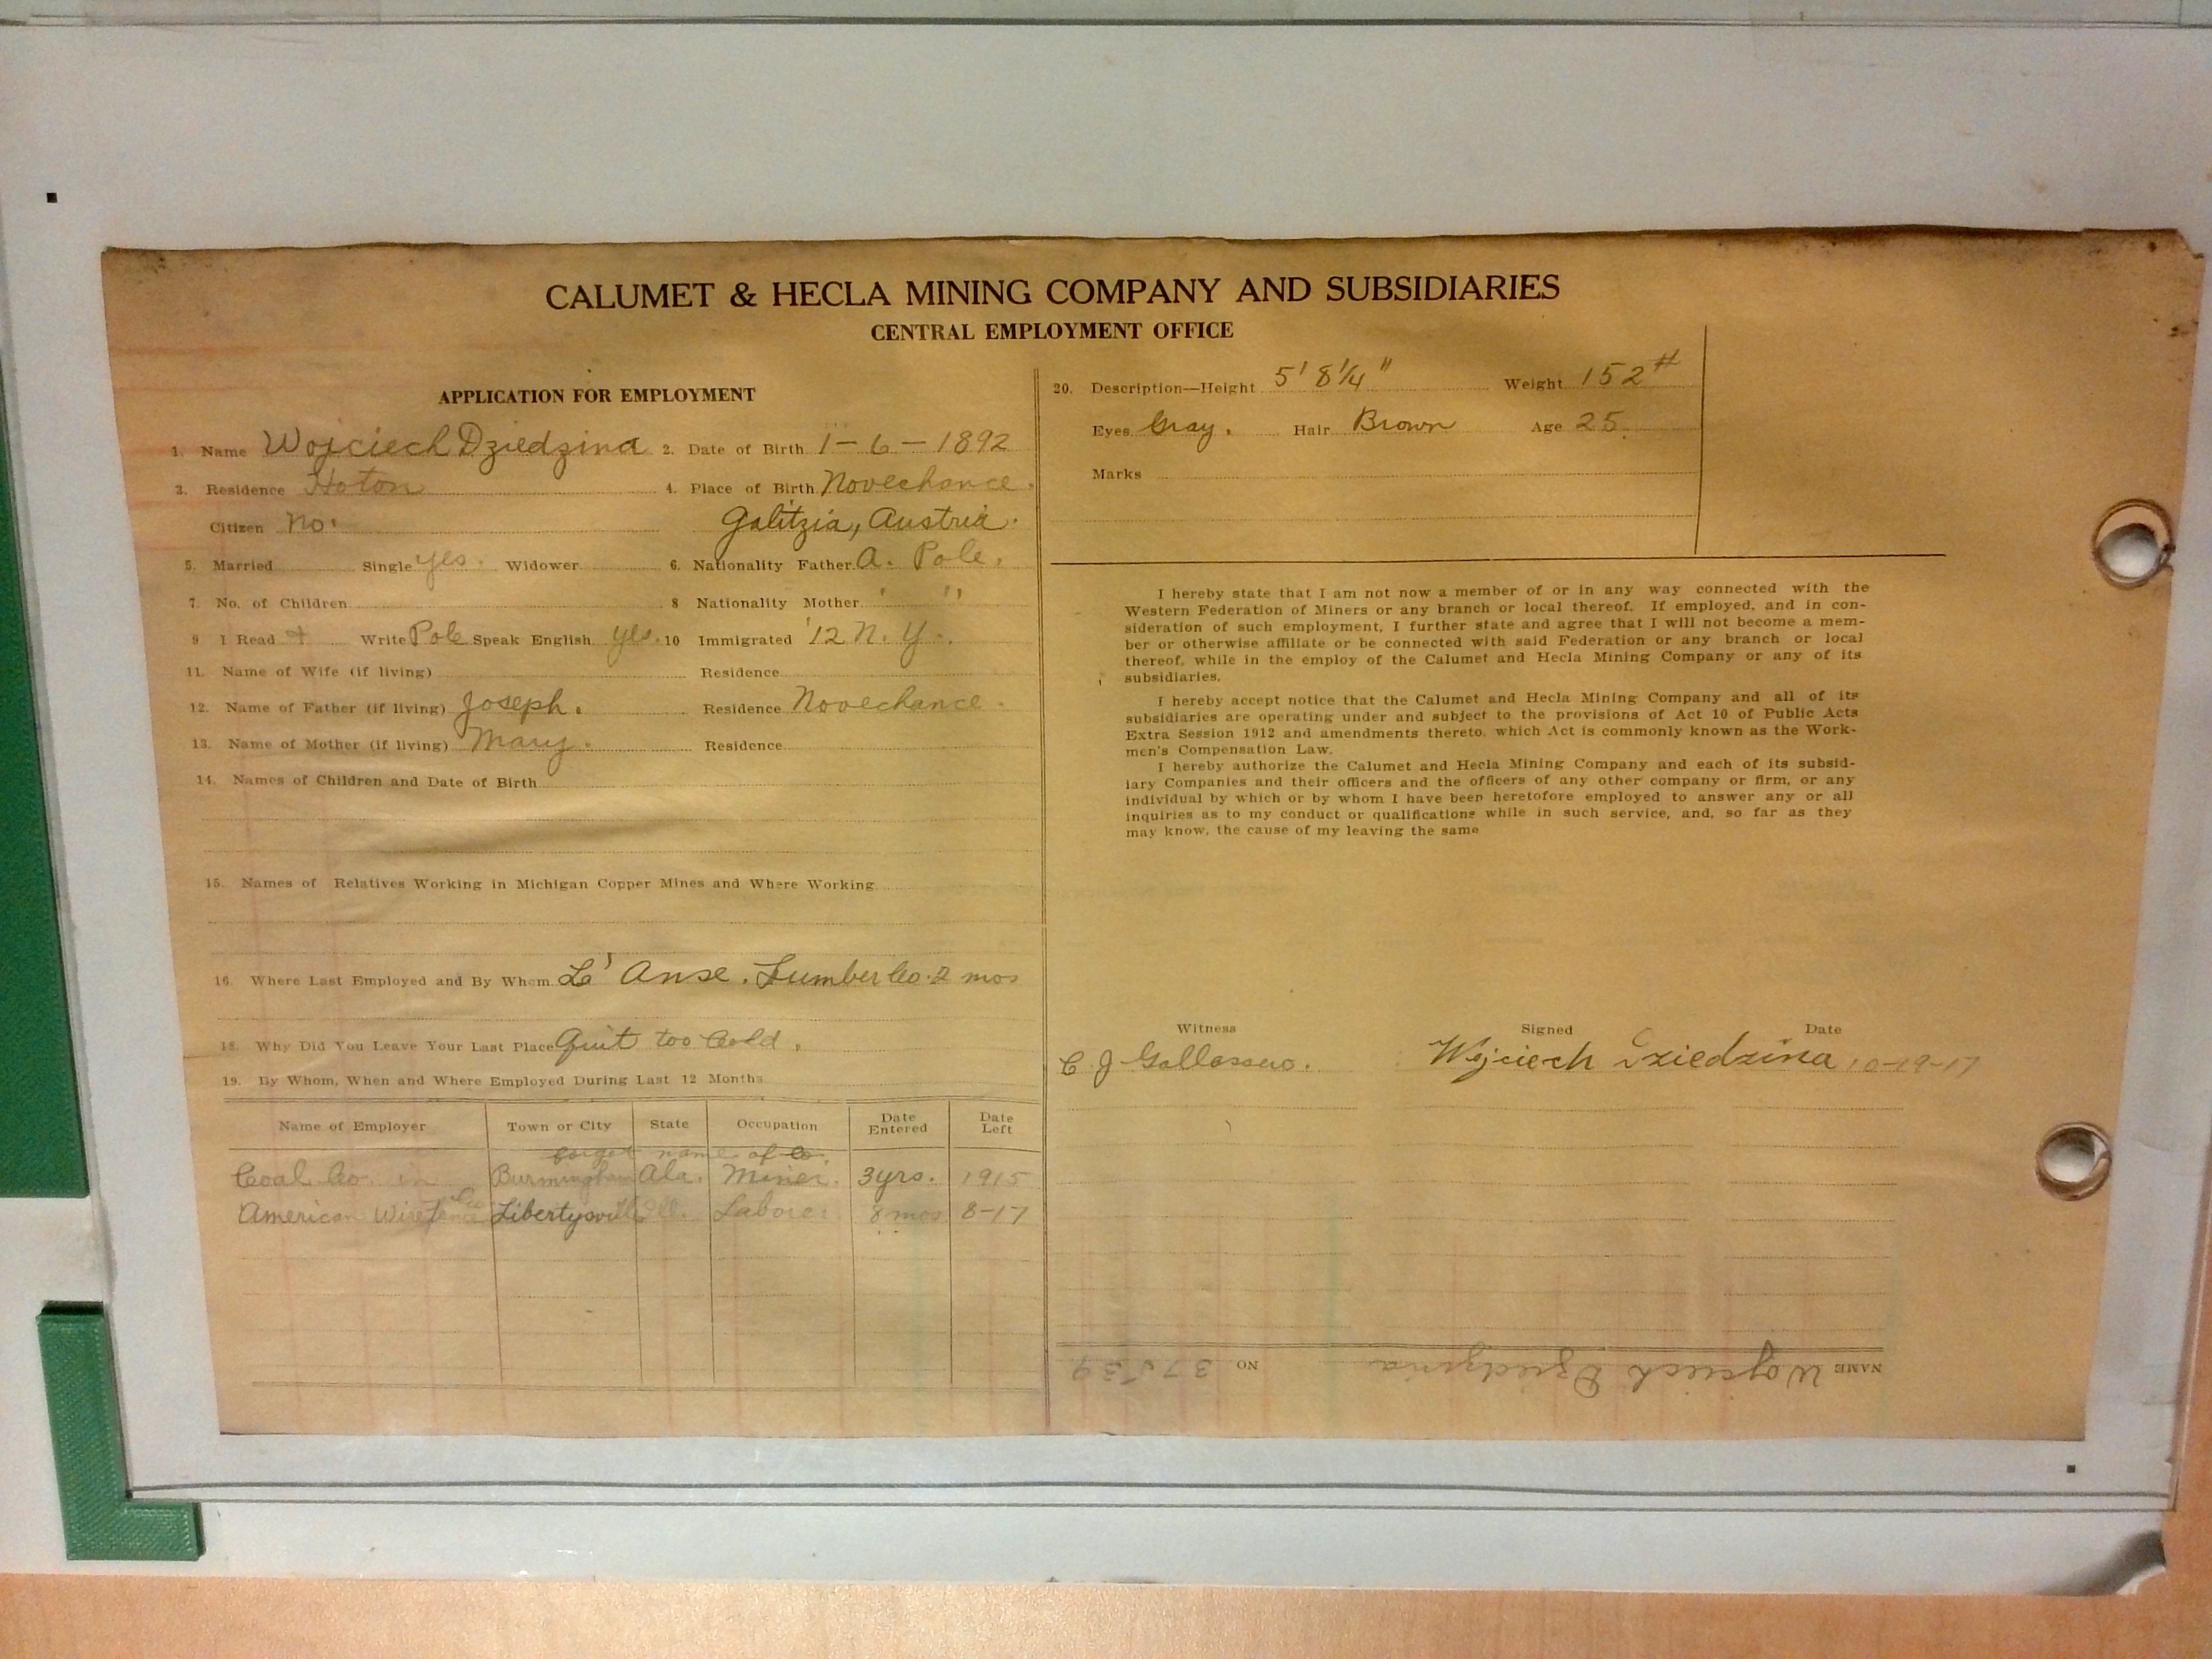 CALUMET & HECLA MINING COMPANY AND SUBSIDIARIES
CENTRAL EMPLOYMENT OFFICE
APPLICATION FOR EMPLOYMENT
1. Name Wojciech Dziedzina 2. Date of Birth 1-6-1892
3. Residence Hoton 4. Place of Birth Novechance.
Citizen No. Galitzia, Austria.
5. Married Single yes. Widower 6. Nationality Father A. Pole.
7. No. of Children 8 Nationality Mother " "
9 I Read + Write Pole Speak English yes. 10 Immigrated '12 N. Y.
11. Name of Wife (if living) Residence
12. Name of Father (if living) Joseph. Residence Novechance.
13. Name of Mother (if living) Mary. Residence
14. Names of Children and Date of Birth
15. Names of Relatives Working in Michigan Copper Mines and Where Working
16. Where Last Employed and By Whom L'Anse. Lumber Co. 2 mos
18. Why Did You Leave Your Last Place Quit too Cold.
19. By Whom, When and Where Employed During Last 12 Months
Name of Employer Town or City State Occupation Date Entered Date Left
forgot name of Co.
Coal Co. in Burmingham Ala. Miner. 3yrs. 1915
American Wire fence Co Libertysville Ill. Laborer 8 mos 8-17
20. Description—Height 5' 8 1/4" Weight 152#
Eyes Gray. Hair Brown Age 25.
Marks
I hereby state that I am not now a member of or in any way connected with the
Western Federation of Miners or any branch or local thereof. If employed, and in con-
sideration of such employment, I further state and agree that I will not become a mem-
ber or otherwise affiliate or be connected with said Federation or any branch or local
thereof, while in the employ of the Calumet and Hecla Mining Company or any of its
subsidiaries.
I hereby accept notice that the Calumet and Hecla Mining Company and all of its
subsidiaries are operating under and subject to the provisions of Act 10 of Public Acts
Extra Session 1912 and amendments thereto, which Act is commonly known as the Work-
men's Compensation Law.
I hereby authorize the Calumet and Hecla Mining Company and each of its subsid-
iary Companies and their officers and the officers of any other company or firm, or any
individual by which or by whom I have been heretofore employed to answer any or all
inquiries as to my conduct or qualifications while in such service, and, so far as they
may know, the cause of my leaving the same
Witness Signed Date
C J Wojciech Dziedzina 10-19-17
NAME Wojciech Dziedzina NO